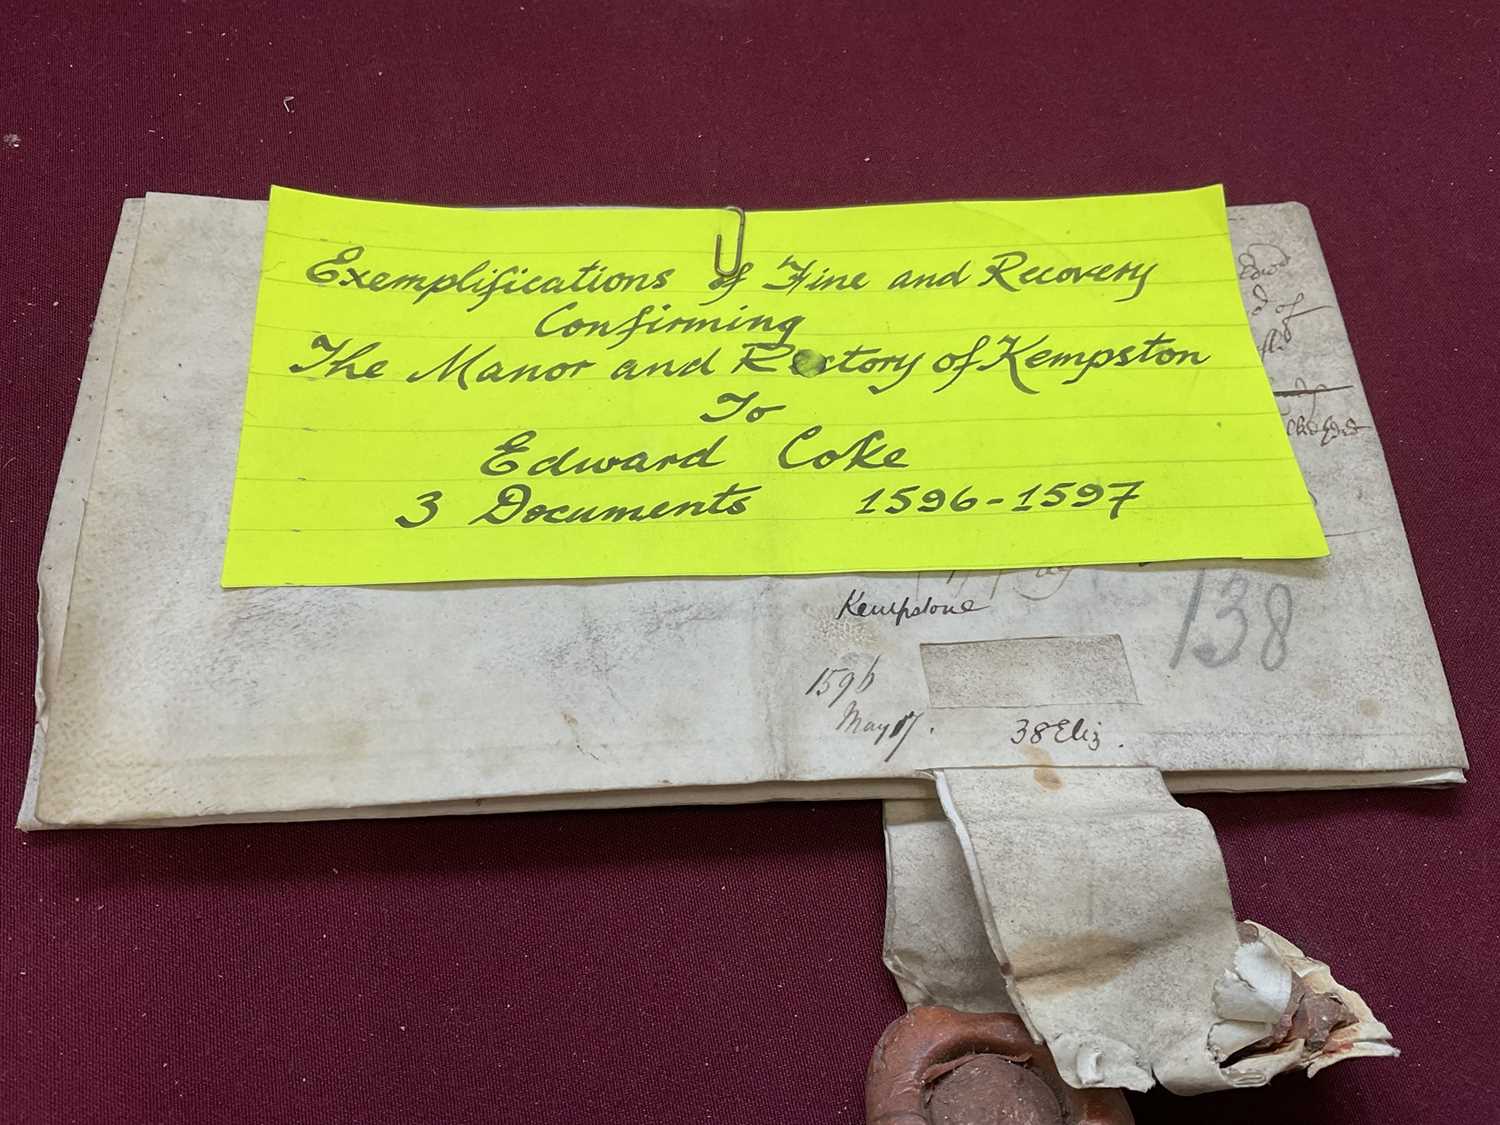 Exemplifications of Fine and Recovery
Confirming
The Manor and Rectory of Kempston
To
Edward Coke
3 Documents 1596-1597
Edw
of
Kempstone
138
1596
May 17.
38 Eliz.